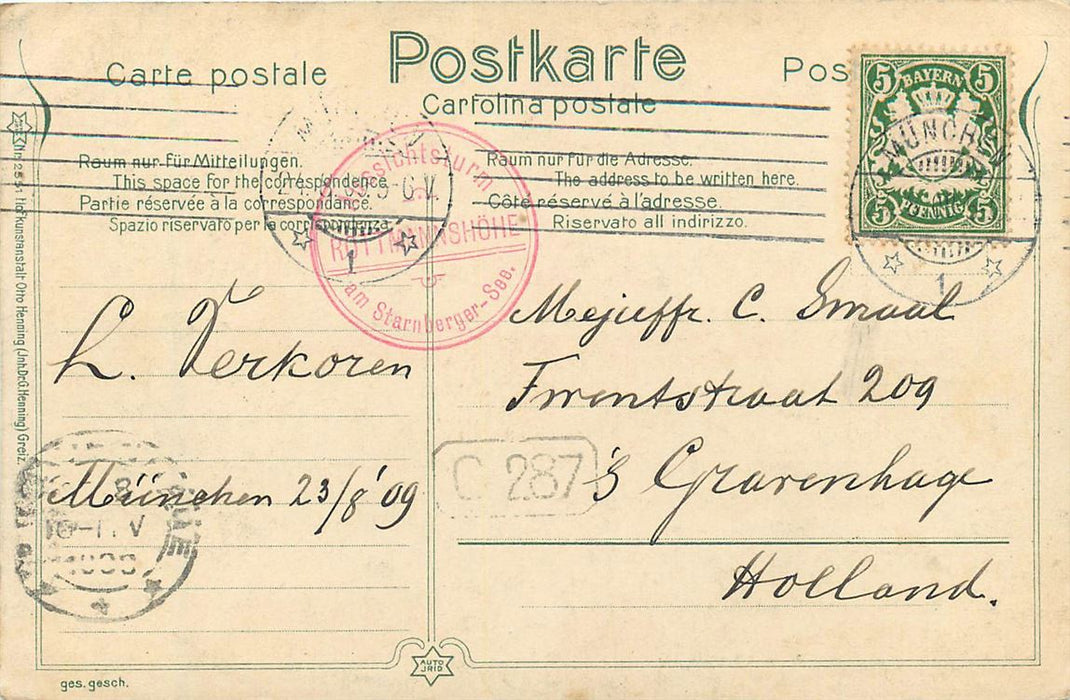 Postkarte
Carte postale
Pos
Cartolina postale
Raum nur für Mitteilungen.
This space for the correspondence
Partie réservée à la correspondance.
Spazio riservato per la corrispondenza.
Raum nur für die Adresse.
The address to be written here.
Côté réservé à l'adresse.
Riservato all indirizzo.
5 BAYERN 5
5 PFENNIG 5
MÜNCHEN
1
1
Aussichtsturm
ROTTMANNSHÖHE
am Starnberger-See.
L. Verkoren
München 23/8 '09
Mejuffr. C. Smaal
Trentstraat 209
's Gravenhage
Holland.
C 287
Kunstanstalt Otto Henning (Jnh.Dr.G.Henning) Greiz
AUTO
IRID
ges. gesch.